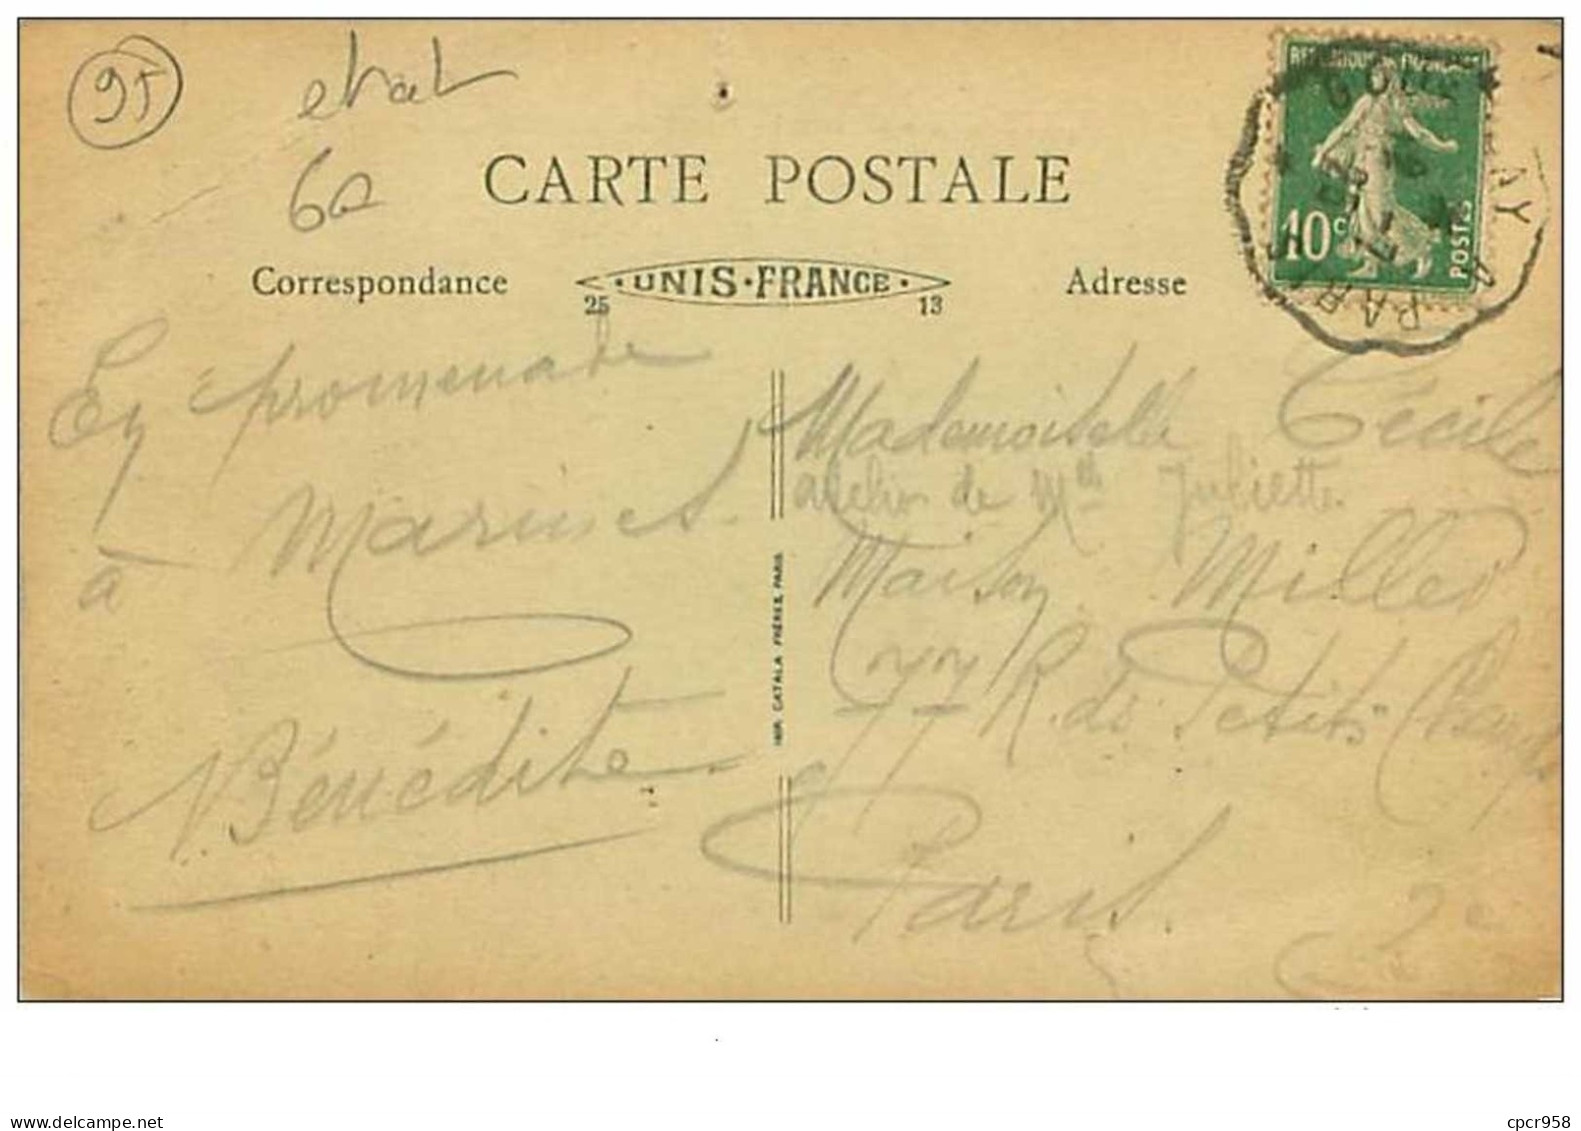 95
etat
60
CARTE POSTALE
Correspondance
UNIS·FRANCE
25 13
Adresse
10c
POSTES
GOURNAY A PARIS
En promenade
à Marines.
Bénédite
IMP. CATALA FRÈRES, PARIS
Mademoiselle Cécile
atelier de Mlle Juliette
Maison
R. des Petits Champs
Paris
2e
www.delcampe.net
cpcr958